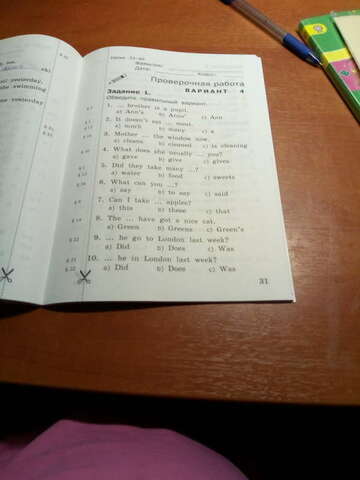 yesterday.
swimming
yesterday
Фамилия:
Дата:
Класс:
Проверочная работа
Задание 1.
ВАРИАНТ 4
Обведите правильный вариант.
1. ... brother is a pupil.
a) Ann's b) Anns' c) Ann
2. It doesn't eat ... meat.
a) much b) many c) a
3. Mother ... the window now.
a) cleans b) cleaned c) is cleaning
4. What does she usually ... you?
a) gave b) give c) gives
5. Did they take many ...?
a) water b) food c) sweets
6. What can you ...?
a) say b) to say c) said
7. Can I take ... apples?
a) this b) these c) that
8. The ... have got a nice cat.
a) Green b) Greens c) Green's
9. ... he go to London last week?
a) Did b) Does c) Was
10. ... he in London last week?
a) Did b) Does c) Was
31